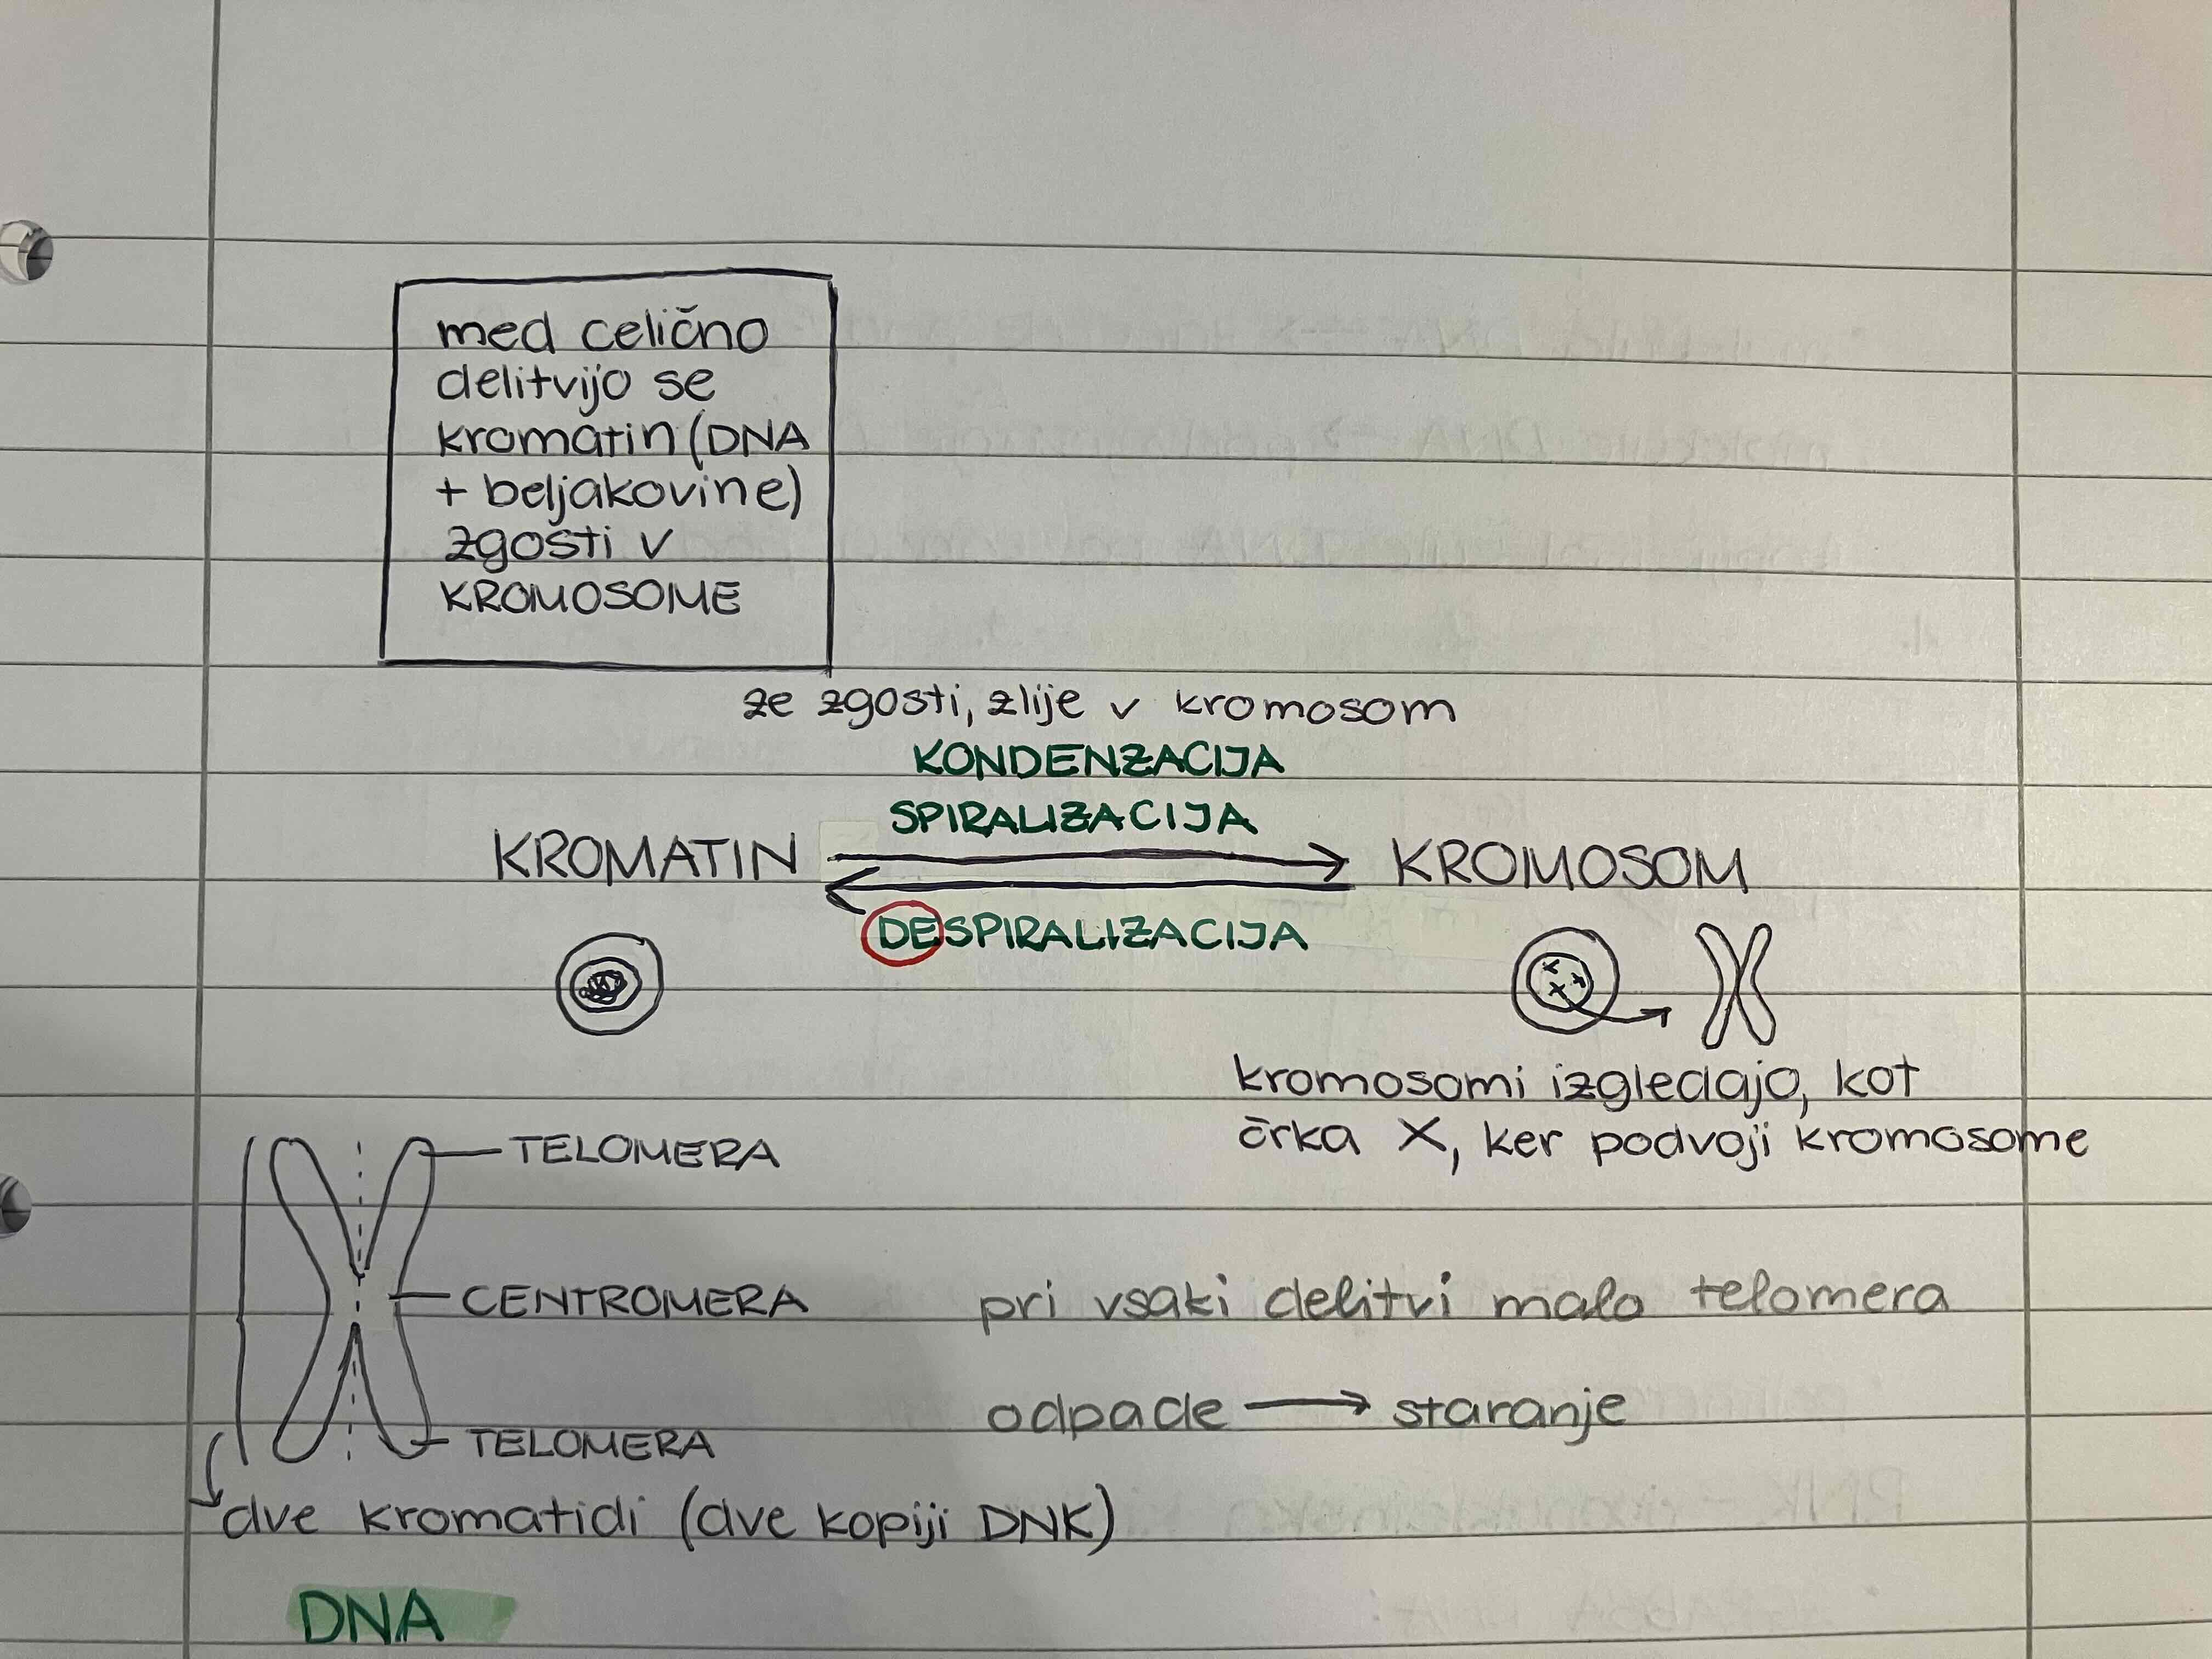 med celično
delitvijo se
kromatin (DNA
+ beljakovine)
zgosti v
KROMOSOME
ze zgosti, zlije v kromosom
KONDENZACIJA
SPIRALIZACIJA
KROMATIN
KROMOSOM
DESPIRALIZACIJA
x x x x
kromosomi izgledajo, kot
črka X, ker podvoji kromosome
TELOMERA
CENTROMERA
pri vsaki delitvi malo telomera
TELOMERA
odpade → staranje
dve kromatidi (dve kopiji DNK)
DNA